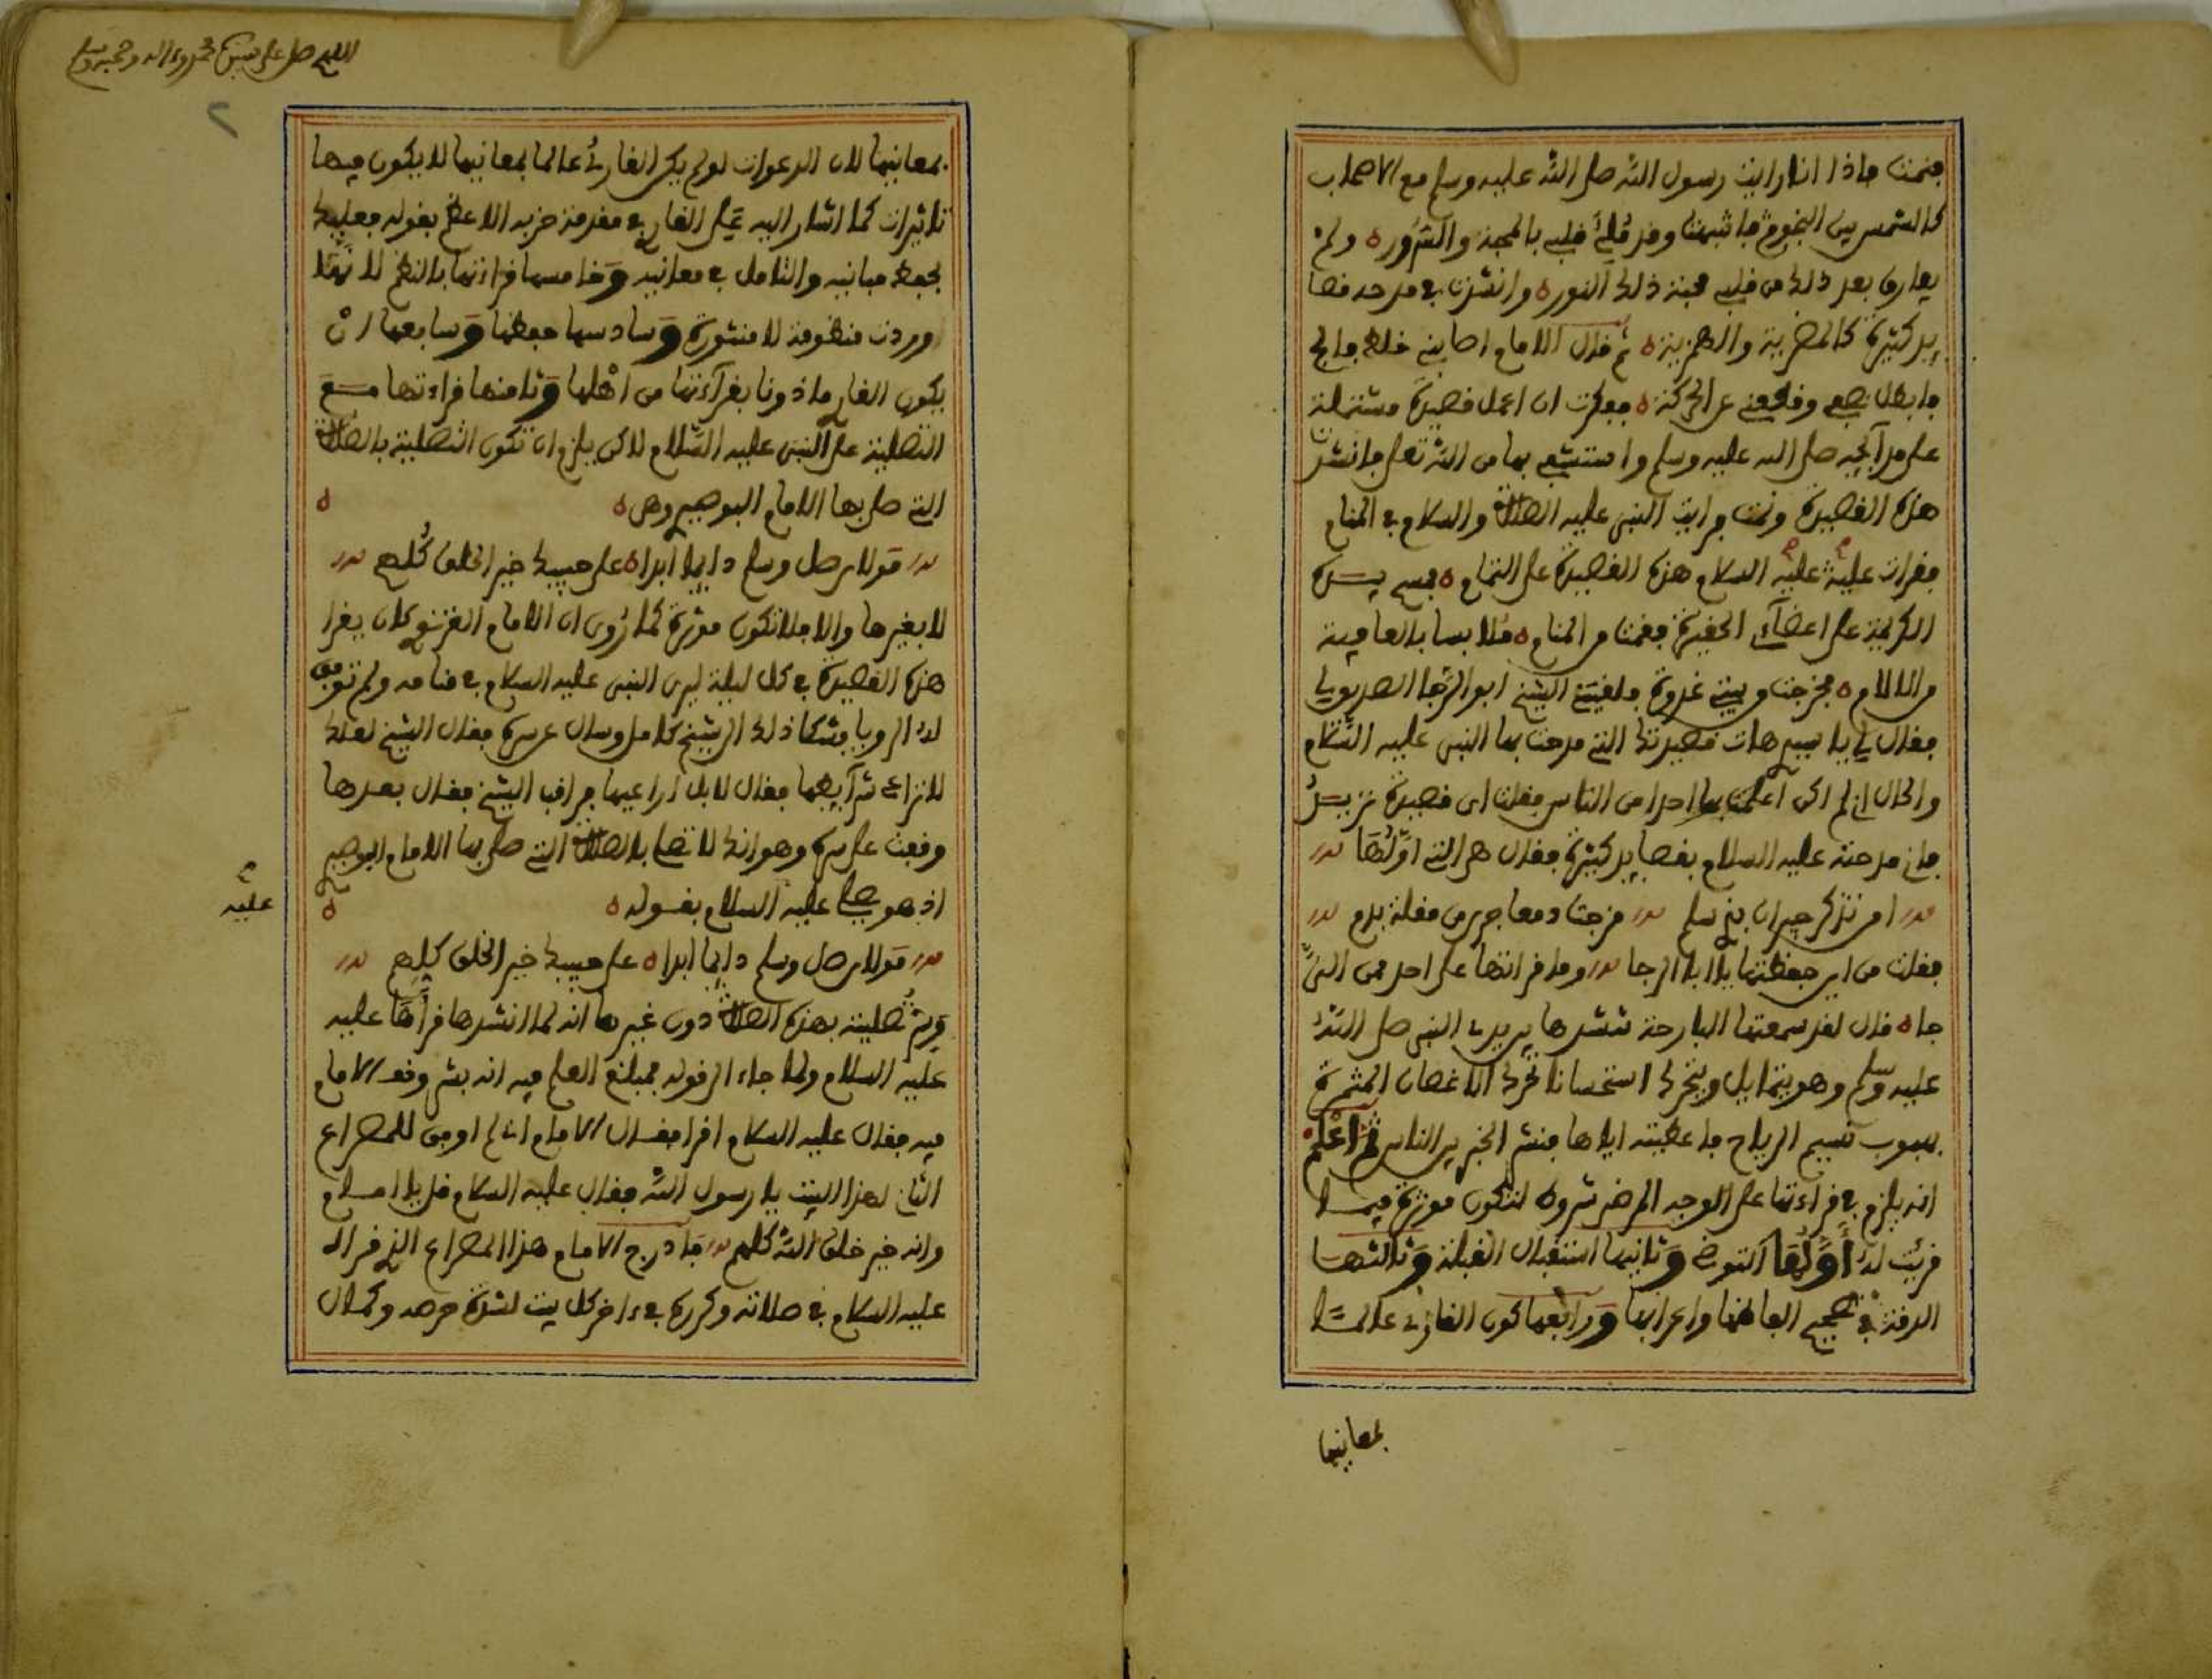 فنمت فاذا انا رايت رسول الله صلى الله عليه وسلم مع الاصحاب
كالشمس بين النجوم فانتبهت وقد مُلِئَ قلبي بالمحبة والسُرُور ولم
يفارق بعد ذلك من قلبي محبة ذلك النور وانشدت في مدحه قصا
يد كثيرة كالمضرية والهمزية ثم قال الامام اصابني خلط فالج
فابطل نصفي وقطعني عن الحركة ففكرت ان اعمل قصيدة مشتملة
على مدائحه صلى الله عليه وسلم واستشفع بها من الله تعلى فانشدت
هذه القصيدة ونمت فرايت النبي عليه الصلاة والسلام في المنام
فقرات عليه عليه السلام هذه القصيدة على التمام فمسح بيده
الكريمة على اعضآئ الحقيرة فقمت من المنام ملابسا بالعافية
من الالام فخرجت من بيتي غدوة فلقيني الشيخ ابو الرجا الصديق
فقال لي يا سيدي هات قصيدتك التي مدحت بها النبي عليه السّلام
والحال اني لم اكن أعلمت بها احدا من الناس فقلت اي قصيدة تريدُ
فاني مدحته عليه السلام بقصايد كثيرة فقال هي التي اوّلُهَا
امن تذكر جيران بذي سلم مزجت دمعا جرى من مقلة بدم
فقلت من اين حفظتها يا ابا الرجا وما قراتها على احد ممن الي
جا قال لقد سمعتها البارحة تنشدها بين يدي النبي صلى الله
عليه وسلم وهو يتمايل ويتحرك استحسانا تحرك الاغصان المثمرة
بهبوب نسيم الرياح فاعطيته اياها فنشر الخبر بين الناس ثم اعلم
انه يلزم في قراءتها على الوجه المرضي شروط لتكون موثرة فيما
قرئت له أَوَّلُهَا التوضي وَثانيها استقبال القبلة وَثالثها
الدقة في تصحيح الفاظها واعرابها وَرابعها كون القارئ عالما
بمعانيها
اللهم صل على سيدنا محمد وءاله وصحبه وسلم
٢
بمعانيها لان الدعوات لو لم يكن القارئُ عالما بمعانيها لا يكون فيها
تاثيرات كما اشار اليه عَلِي القاري في مقدمة حزبه الاعظم بقوله فعليك
بحفظ مبانيه والتامل في معانيه وَخامسها قراءتها بالنظم لانَّها
وردت منظومة لا منثورة وَسادسها حفظها وَسابعها انْ
يكون القاري ماذونا بقرآءتها من اهْلها وَثامنها قراءتها مع
التصلية على النبي عليه السّلام لاكن يلزم ان تكون التصلية بالصلاة
التي صلى بها الامام البوصيري وهي
مَولاي صل وسلم دايما ابدا على حبيبك خير الخلق كُلهم
لا بغيرها والا فلا تكون موثرة كما رُوي ان الامام الغزنوي كان يقرا
هذه القصيدة في كل ليلة ليرى النبي عليه السلام في منامه ولم توفق
له الرويا فشكا ذلك الى شيخ كامل وسال عن سره فقال الشيخ لعلك
لا تراعي شرآيطها فقال لا بل اراعيها فراقب الشيخ فقال بعدها
وقعت على سره وهو انك لا تصلي بالصلاة التي صلى بها الامام البوصيري
اذ هو يصلي عليه السلام بقوله
عليه
مَولاي صل وسلم دايما ابدا على حبيبك خير الخلق كلهم
وسِرُّ تصليته بهذه الصلاة دون غيرها انه لما انشدها قرأهَا عليه
عليه السلام ولما جاء الى قوله فمبلغ العلم فيه انه بشر وقف الامام
فيه فقال عليه السلام اقرا فقال الامام اني لم اوفق للمصراع
الثاني لهذا البيت يا رسول الله فقال عليه السلام قل يا امام
وانه خير خلق الله كلهم فادرج الامام هذا المصراع الذي قراه
عليه السلام في صلاته وكرره في ءاخر كل بيت لشدة حرصه وكمال